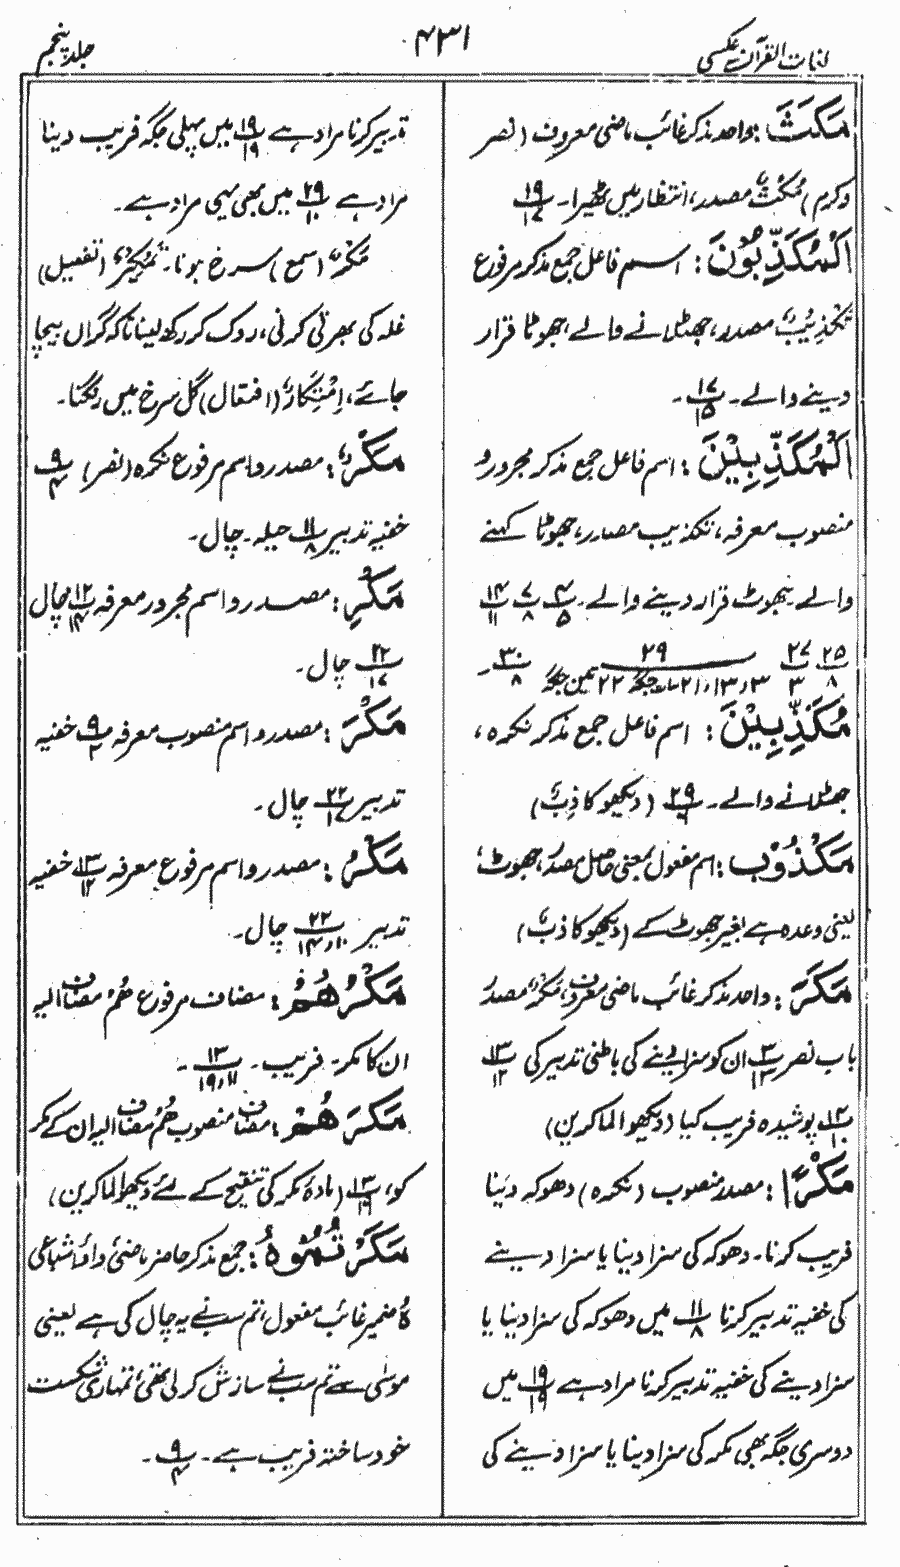 لغات القرآن عکسی
۴۳۱
جلد پنجم
مَكَثَ : واحد مذکر غائب ماضی معروف (نصر
وکرم) مُکْثٌ مصدر، انتظار میں ٹھیرا۔ ۱۹/۱۷
اَلْمُكَذِّبُوْنَ : اسم فاعل جمع مذکر مرفوع
تَکْذِیْبٌ مصدر، جھٹلانے والے، جھوٹا قرار
دینے والے۔ ۲۷/۱۵۔
اَلْمُكَذِّبِيْنَ : اسم فاعل جمع مذکر مجرور و
منصوب معرفہ، تکذیب مصدر، جھوٹا کہنے
والے۔ جھوٹ قرار دینے والے۔ ۴/۵ ۷/۸ ۱۴/۱۱
۲۵/۸ ۲۷/۳ ۲۹ ۳۰/۸۔
مُكَذِّبِيْنَ : اسم فاعل جمع مذکر نکرہ،
جھٹلانے والے۔ (دیکھو کاذِبٌ)
مَكْذُوْبٍ : اسم مفعول بمعنی حاصل مصدر، جھوٹ،
یعنی وعدہ ہے بغیر جھوٹ کے (دیکھو کاذبٌ)
مَكَرَ : واحد مذکر غائب ماضی معروف، مَکْرٌ مصدر
باب نصر ۳/۱۳ ان کو سزا دینے کی باطنی تدبیر کی ۱۳/۱۲
پوشیدہ فریب کیا (دیکھو الماکرین)
مَكْرًا : مصدر منصوب (نکرہ) دھوکہ دینا
فریب کرنا۔ دھوکہ کی سزا دینا یا سزا دینے
کی خفیہ تدبیر کرنا ۱۱/۸ میں دھوکہ کی سزا دینا یا
سزا دینے کی خفیہ تدبیر کرنا مراد ہے ۱۹/۱۹ میں
دوسری جگہ بھی مکر کی سزا دینا یا سزا دینے کی
تدبیر کرنا مراد ہے ۱۹/۱۹ میں پہلی جگہ فریب دینا
مراد ہے ۲۹/۱۰ میں بھی یہی مراد ہے۔
مَکْرٌ (سمع) سرخ ہونا۔ تَمْکِیْرٌ (تفعیل)
غلہ کی بھرتی کرنی، روک کر رکھ لینا تاکہ گراں بیچا
جائے، اِمْتِکَارٌ (افتعال) گل سرخ میں رنگنا۔
مَكْرٌ : مصدر و اسم مرفوع نکرہ (نصر) ۹/۴
خفیہ تدبیر ۱۱/۸ حیلہ۔ چال۔
مَكْرِ : مصدر و اسم مجرور معرفہ ۱۲/۱۴ چال
۲۲/۱۷ چال۔
مَكْرَ : مصدر و اسم منصوب معرفہ ۹/۲ خفیہ
تدبیر ۲۲/۱۷ چال۔
مَكْرُ : مصدر و اسم مرفوع معرفہ ۱۳/۱۲ خفیہ
تدبیر ۲۲/۱۰، ۱۴ چال۔
مَكْرُهُمْ : مضاف مرفوع ھُمْ مضاف الیہ
ان کا مکر۔ فریب۔ ۱۳/۱۱، ۱۹۔
مَكْرَهُمْ : مضاف منصوب ھُمْ مضاف الیہ ان کے مکر
کو، ۱۳/۱۹ (مادۂ مکر کی تنقیح کے لئے دیکھو الماکرین)
مَكَرْتُمُوْهُ : جمع مذکر حاضر ماضی واؤ اشباعی
ہٗ ضمیر غائب مفعول، تم سب نے یہ چال کی ہے یعنی
موسٰی سے تم سب نے سازش کر لی تھی، تمہاری شکست
خود ساختہ فریب ہے۔ ۹/۴۔